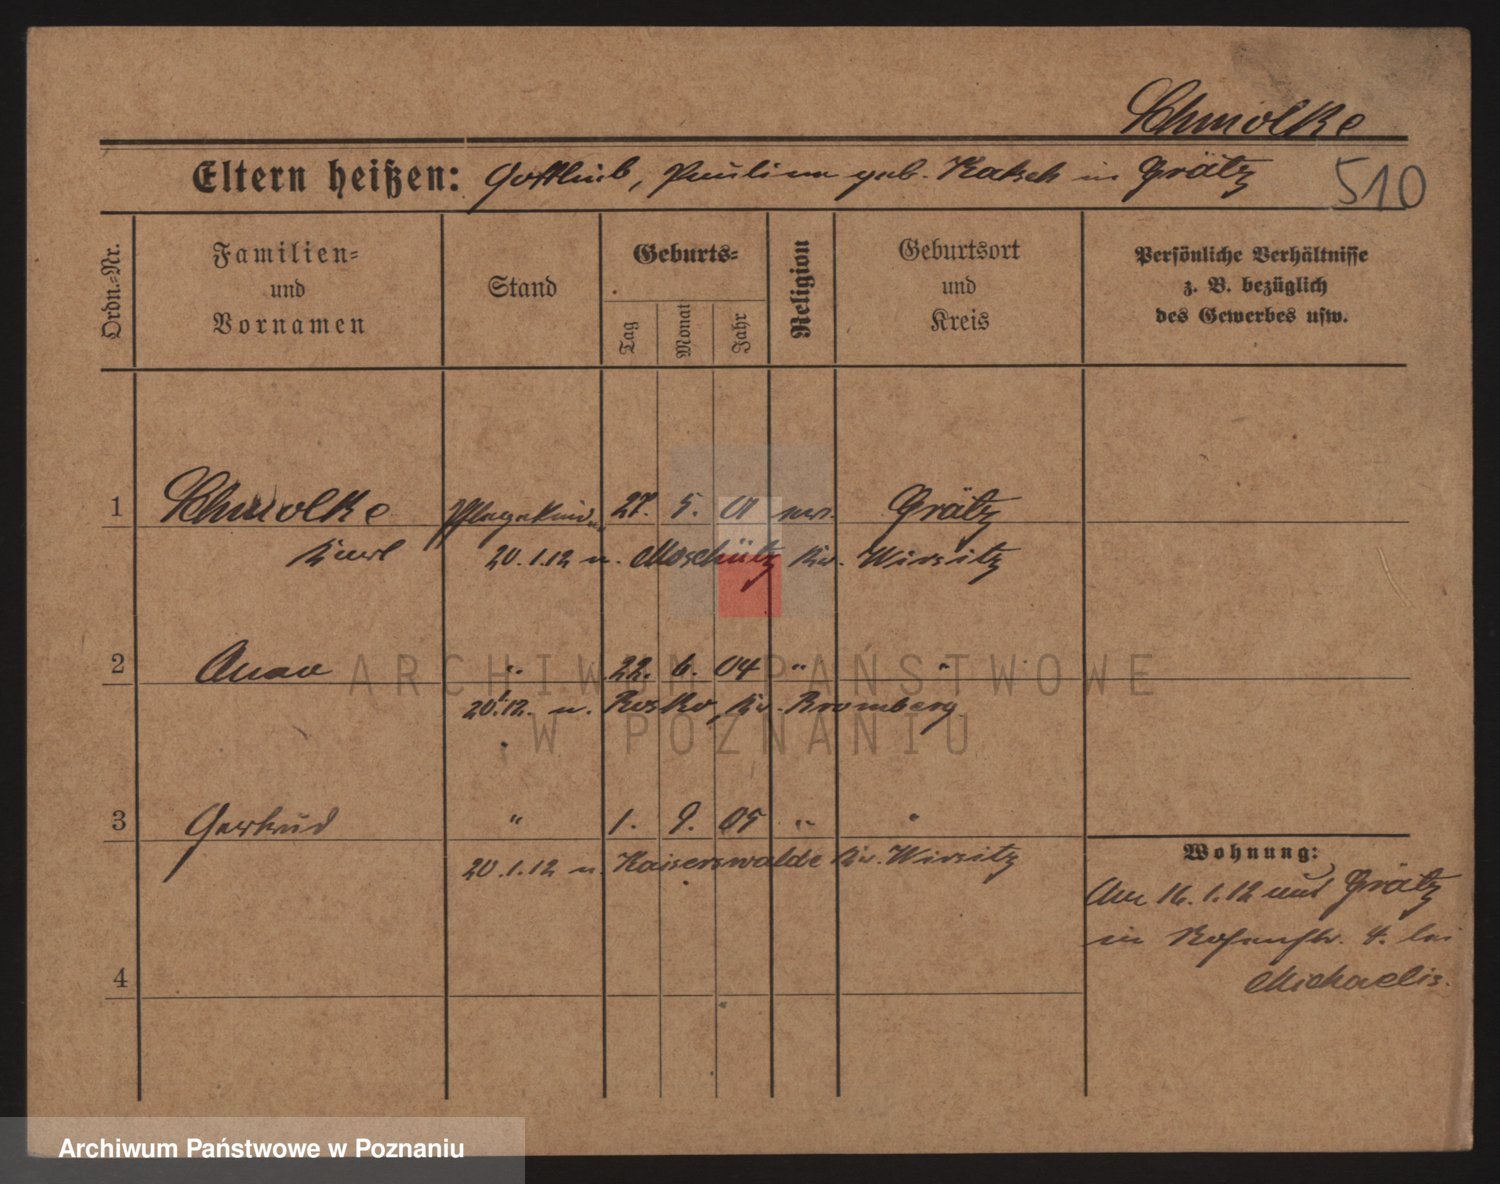 Schmolke
Eltern heißen: Gottlieb, Pauline geb. Kabsch in Grätz 510
Ordn.-Nr.
Familien-
und
Vornamen
Stand
Geburts-
Tag
Monat
Jahr
Religion
Geburtsort
und
Kreis
Persönliche Verhältnisse
z. B. bezüglich
des Gewerbes usw.
1 Schmolke Pflegekind 27. 5. 01 Grätz
20.1.12 n. Moschütz Kr. Wirsitz
2 Anna " 22. 6. 04 " "
20.1.12. n. Rosko, Kr. Bromberg
3 Gertrud " 1. 9. 05 " "
20.1.12 n. Kaiserswalde Kr. Wirsitz
Wohnung:
Am 16.1.12 aus Grätz
in 4. bei
Michaelis.
4
ARCHIWUM PAŃSTWOWE
W POZNANIU
Archiwum Państwowe w Poznaniu